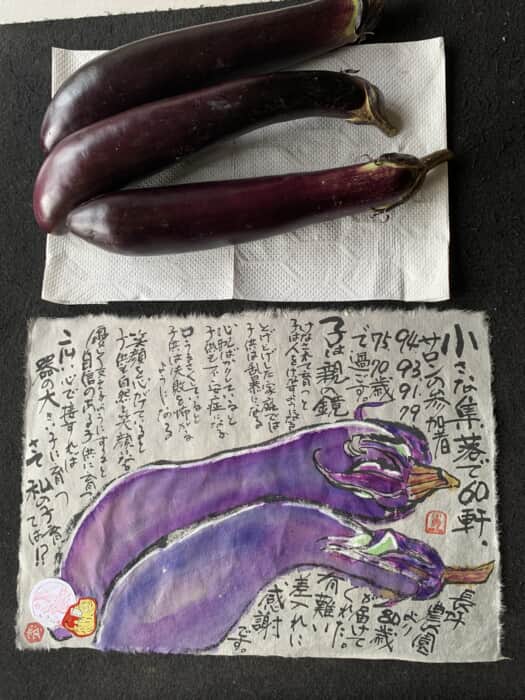 小さな集落で60軒、
サロンの参加者
94 93 91 79
75 70歳
で過ごす。
子は親の鏡
けなされて育つと
子供は人をけなすようになる
とげとげした家庭では
子供は乱暴になる
心配ばかりしていると
子供も不安症になる
口うるさくしていると
子供は失敗を怖がる
ようになる
笑顔を心がけていると
子供も自然と笑顔になる
優しく支えるようにすると
自信のある子供に育つ
広い心で接すれば
器の大きい子に育つ
さて私の子育ては!?
長坂
農園
より
80歳
が届けて
くれた。
有難い
差入れに
感謝
です。